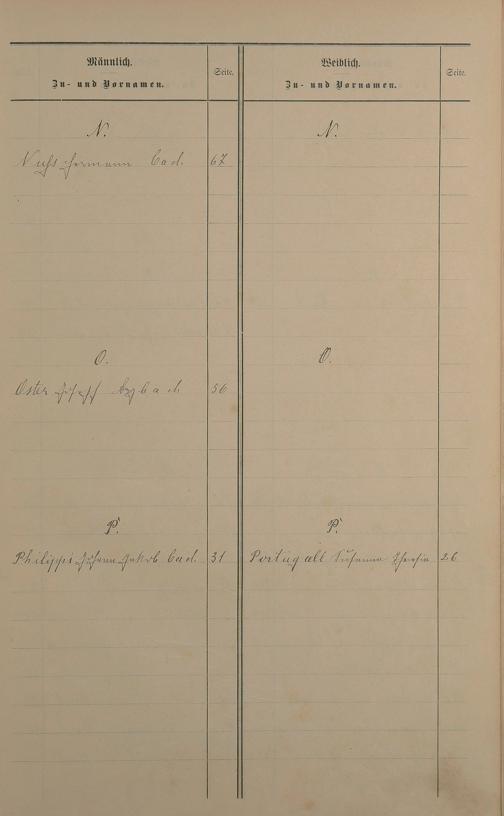 Männlich.
Zu- und Vornamen.
Seite.
Weiblich.
Zu- und Vornamen.
Seite.
N.
N.
Hermann cad. 67
O.
O.
Oster Josef cad. 56
P.
P.
Philippi Johann Jakob cad. 31
Portugall Susanna Theresia 26